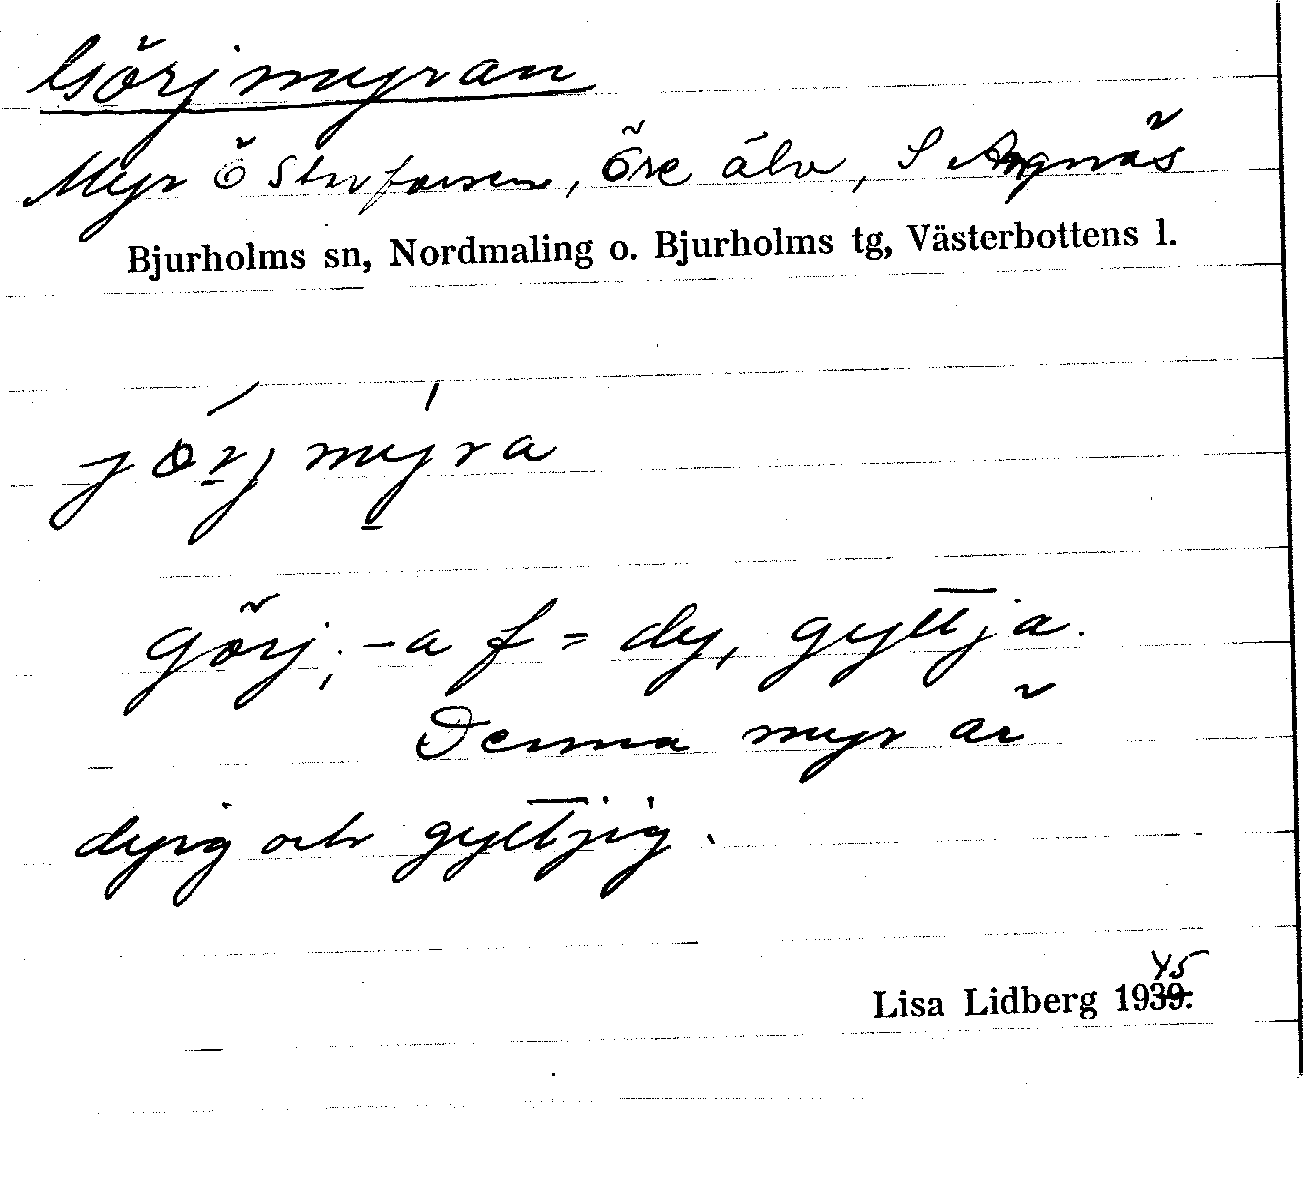 Görjmyran
Myr Ö Storforsen, Öre älv, S Agnäs
Bjurholms sn, Nordmaling o. Bjurholms tg, Västerbottens l.
jörjmyra
görj, -a f = dy, gyttja.
Denna myr är
dyig och gyttjig.
45
Lisa Lidberg 1939.